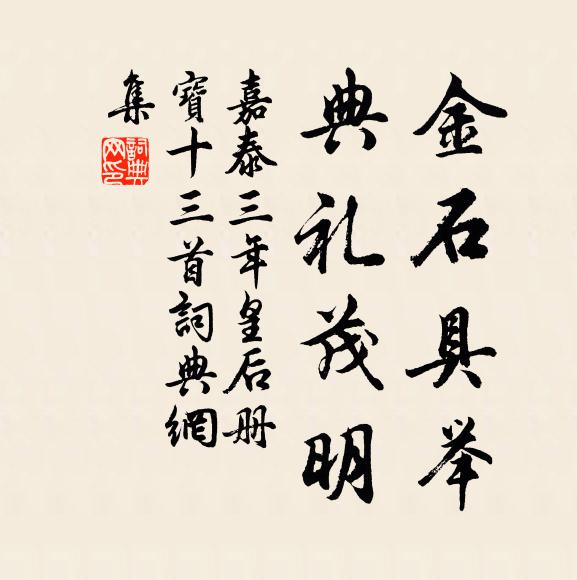 金石具举
典礼茂明
嘉泰三年皇后册
寶十三首詞典網
集
詞典
网印